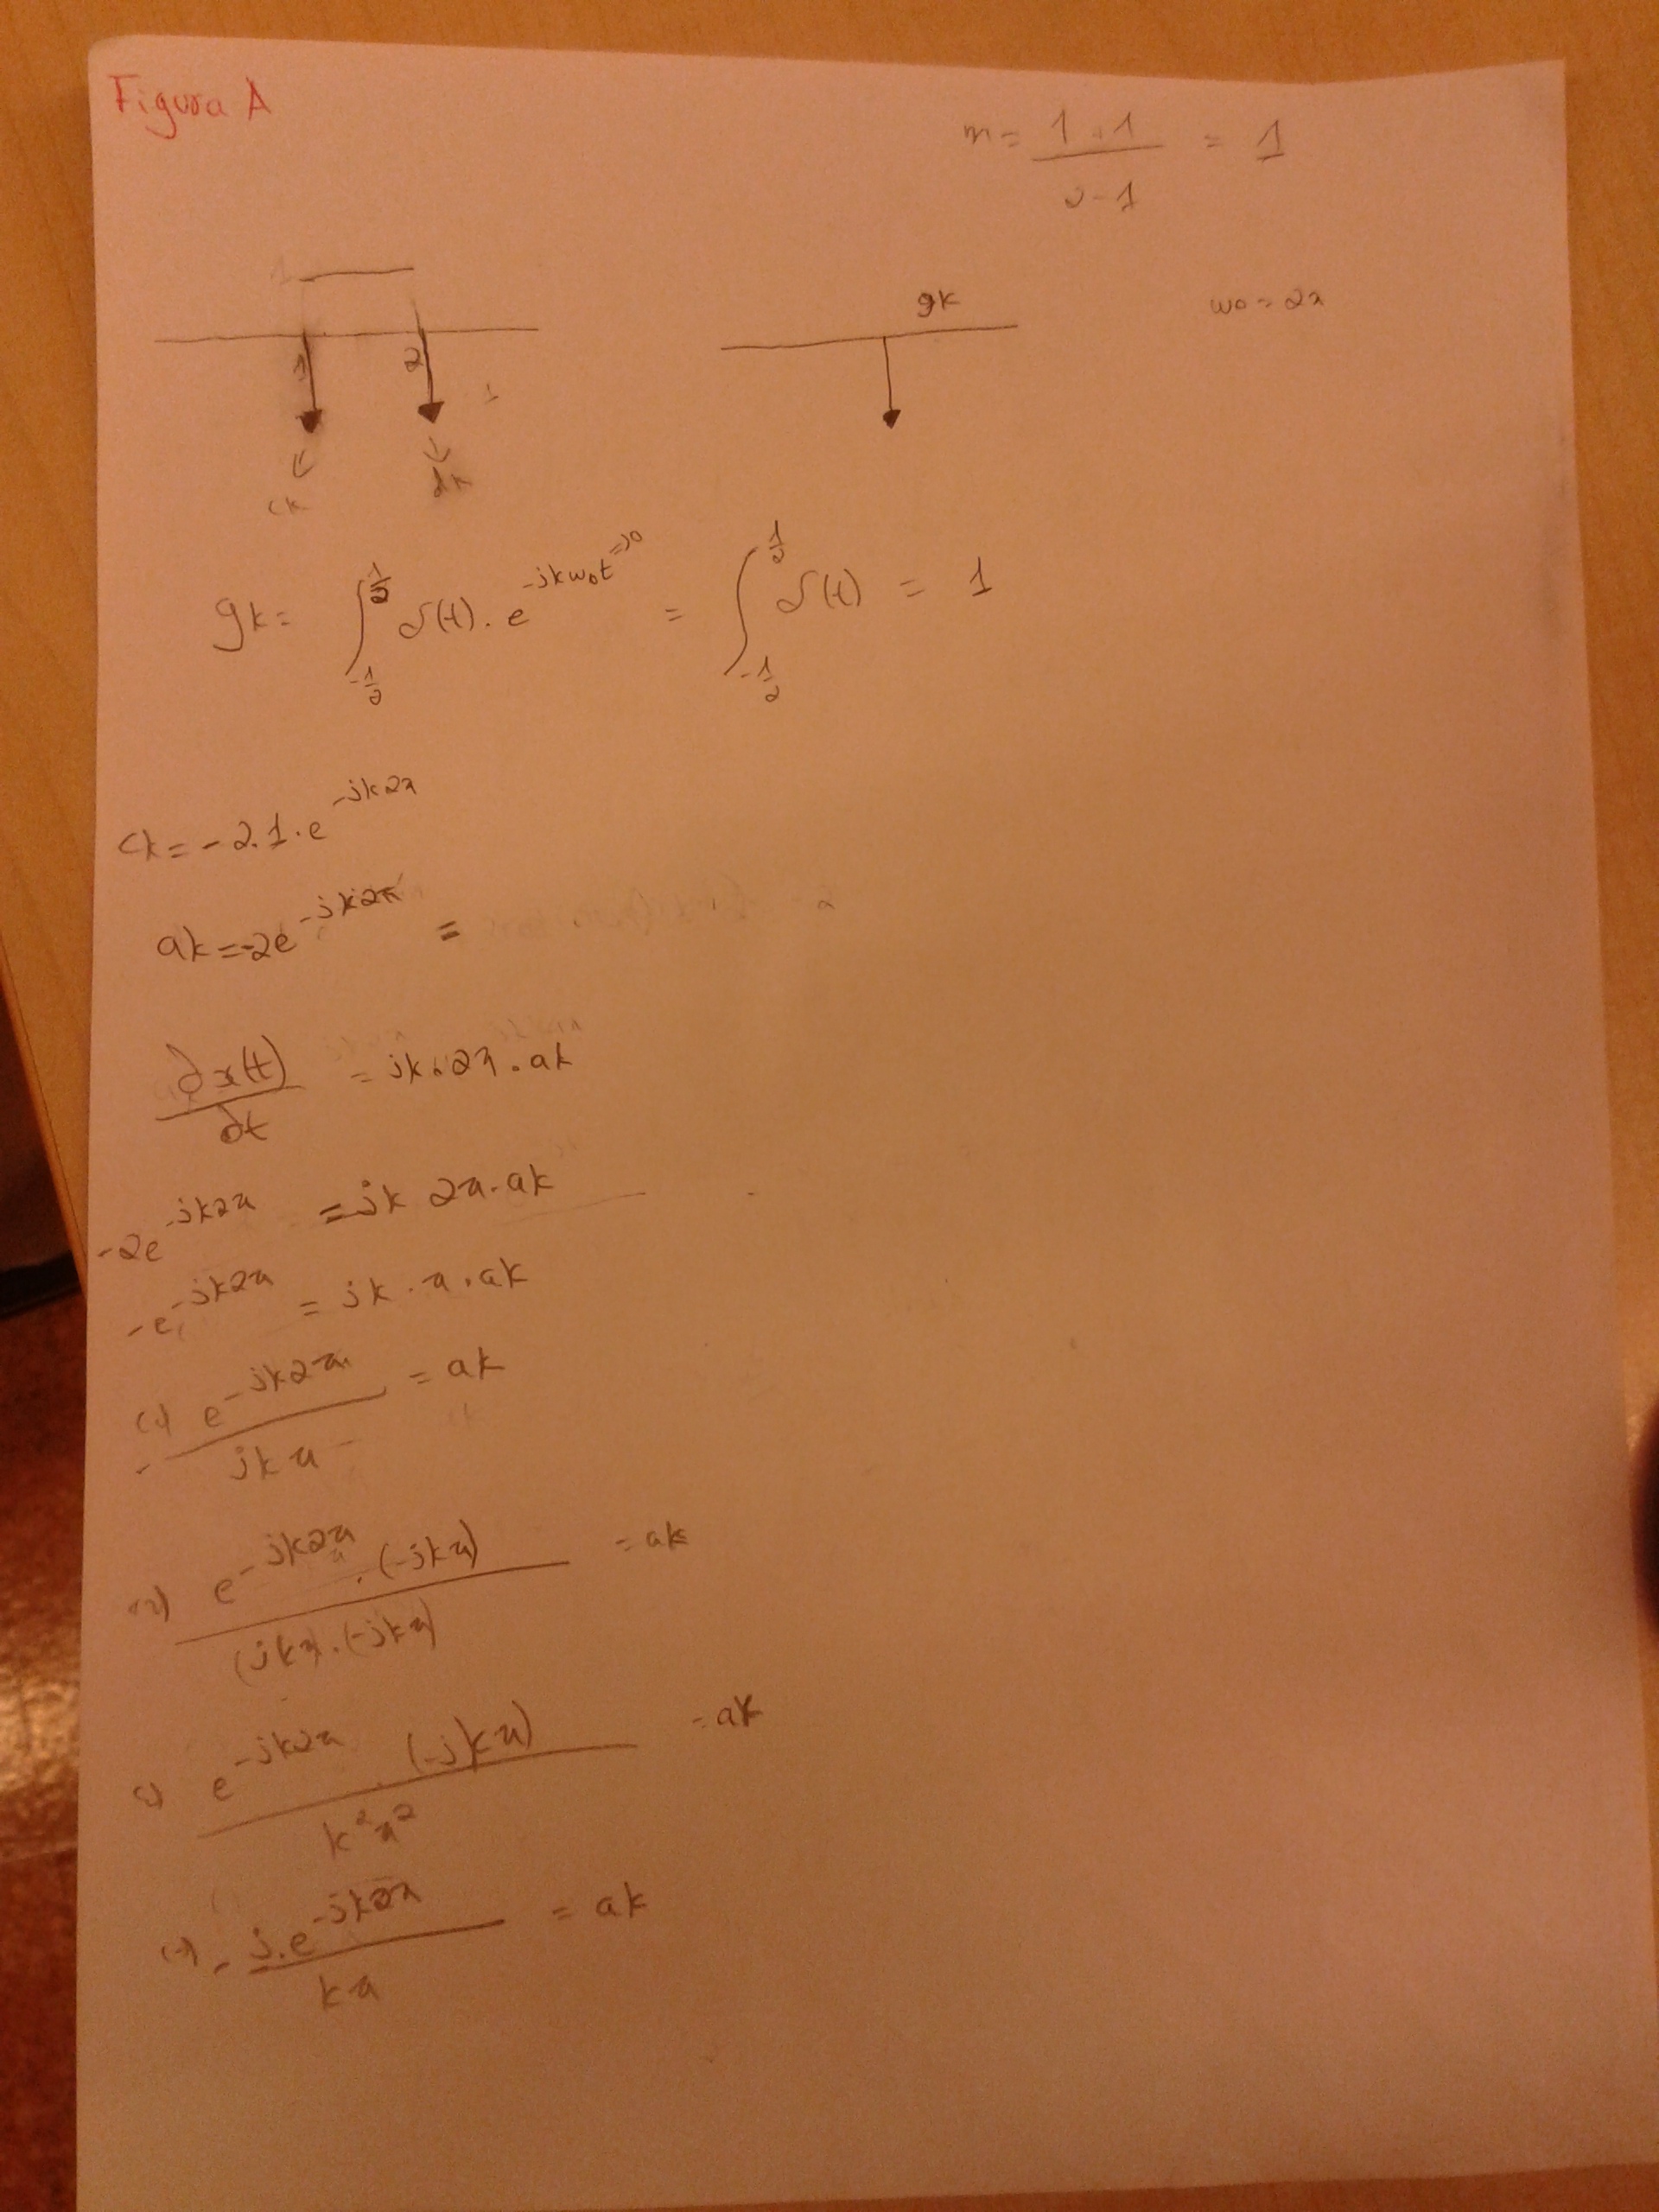 Figura A
m = 1+1 / 0-1 = 1
1
gk
w0 = 2π
1 2 1
ck dk
gk = ∫_{-1/2}^{1/2} δ(t). e^{-jkw0t => 0} = ∫_{-1/2}^{1/2} δ(t) = 1
ck = -2.1.e^{-jk2π}
ak = -2e^{-jk2π} =
dx(t)/dt = jk.2π.ak
-2e^{-jk2π} = jk 2π.ak
-e^{-jk2π} = jk.π.ak
(=) - e^{-jk2π} / jkπ = ak
(=) e^{-jk2π} . (-jkπ) / (jkπ).(-jkπ) = ak
(=) e^{-jk2π} . (-jkπ) / k²π² = ak
(=) - j.e^{-jk2π} / kπ = ak